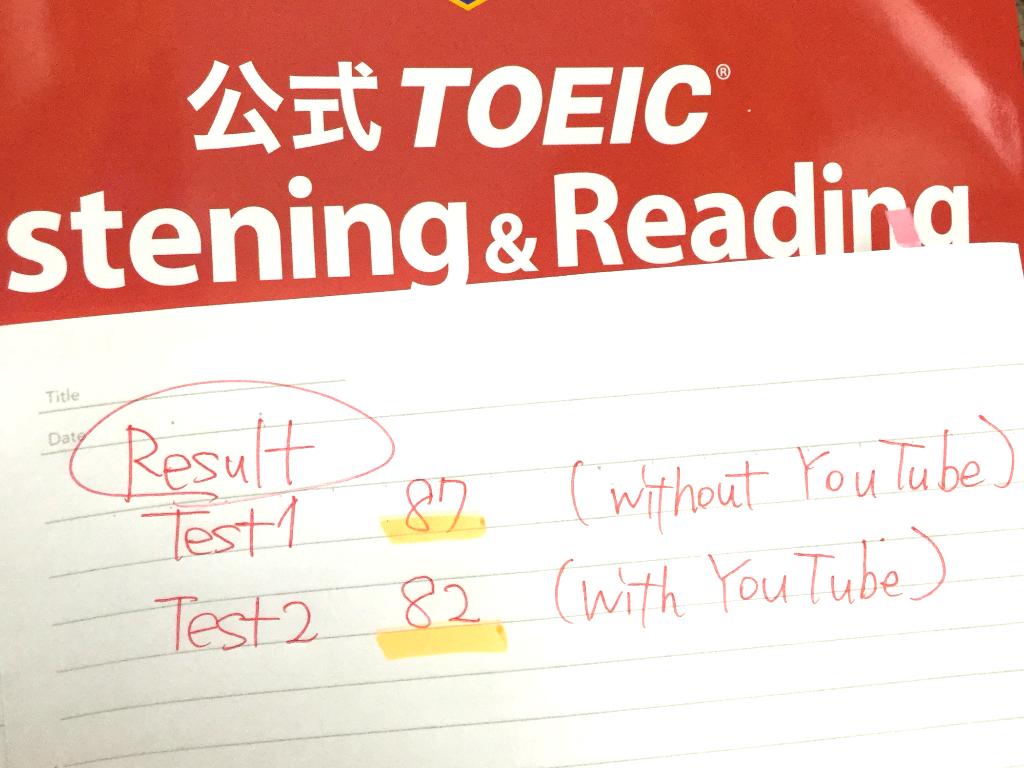 公式 TOEIC®
stening & Reading
Title
Date
Result
Test1 87 (without YouTube)
Test2 82 (with YouTube)